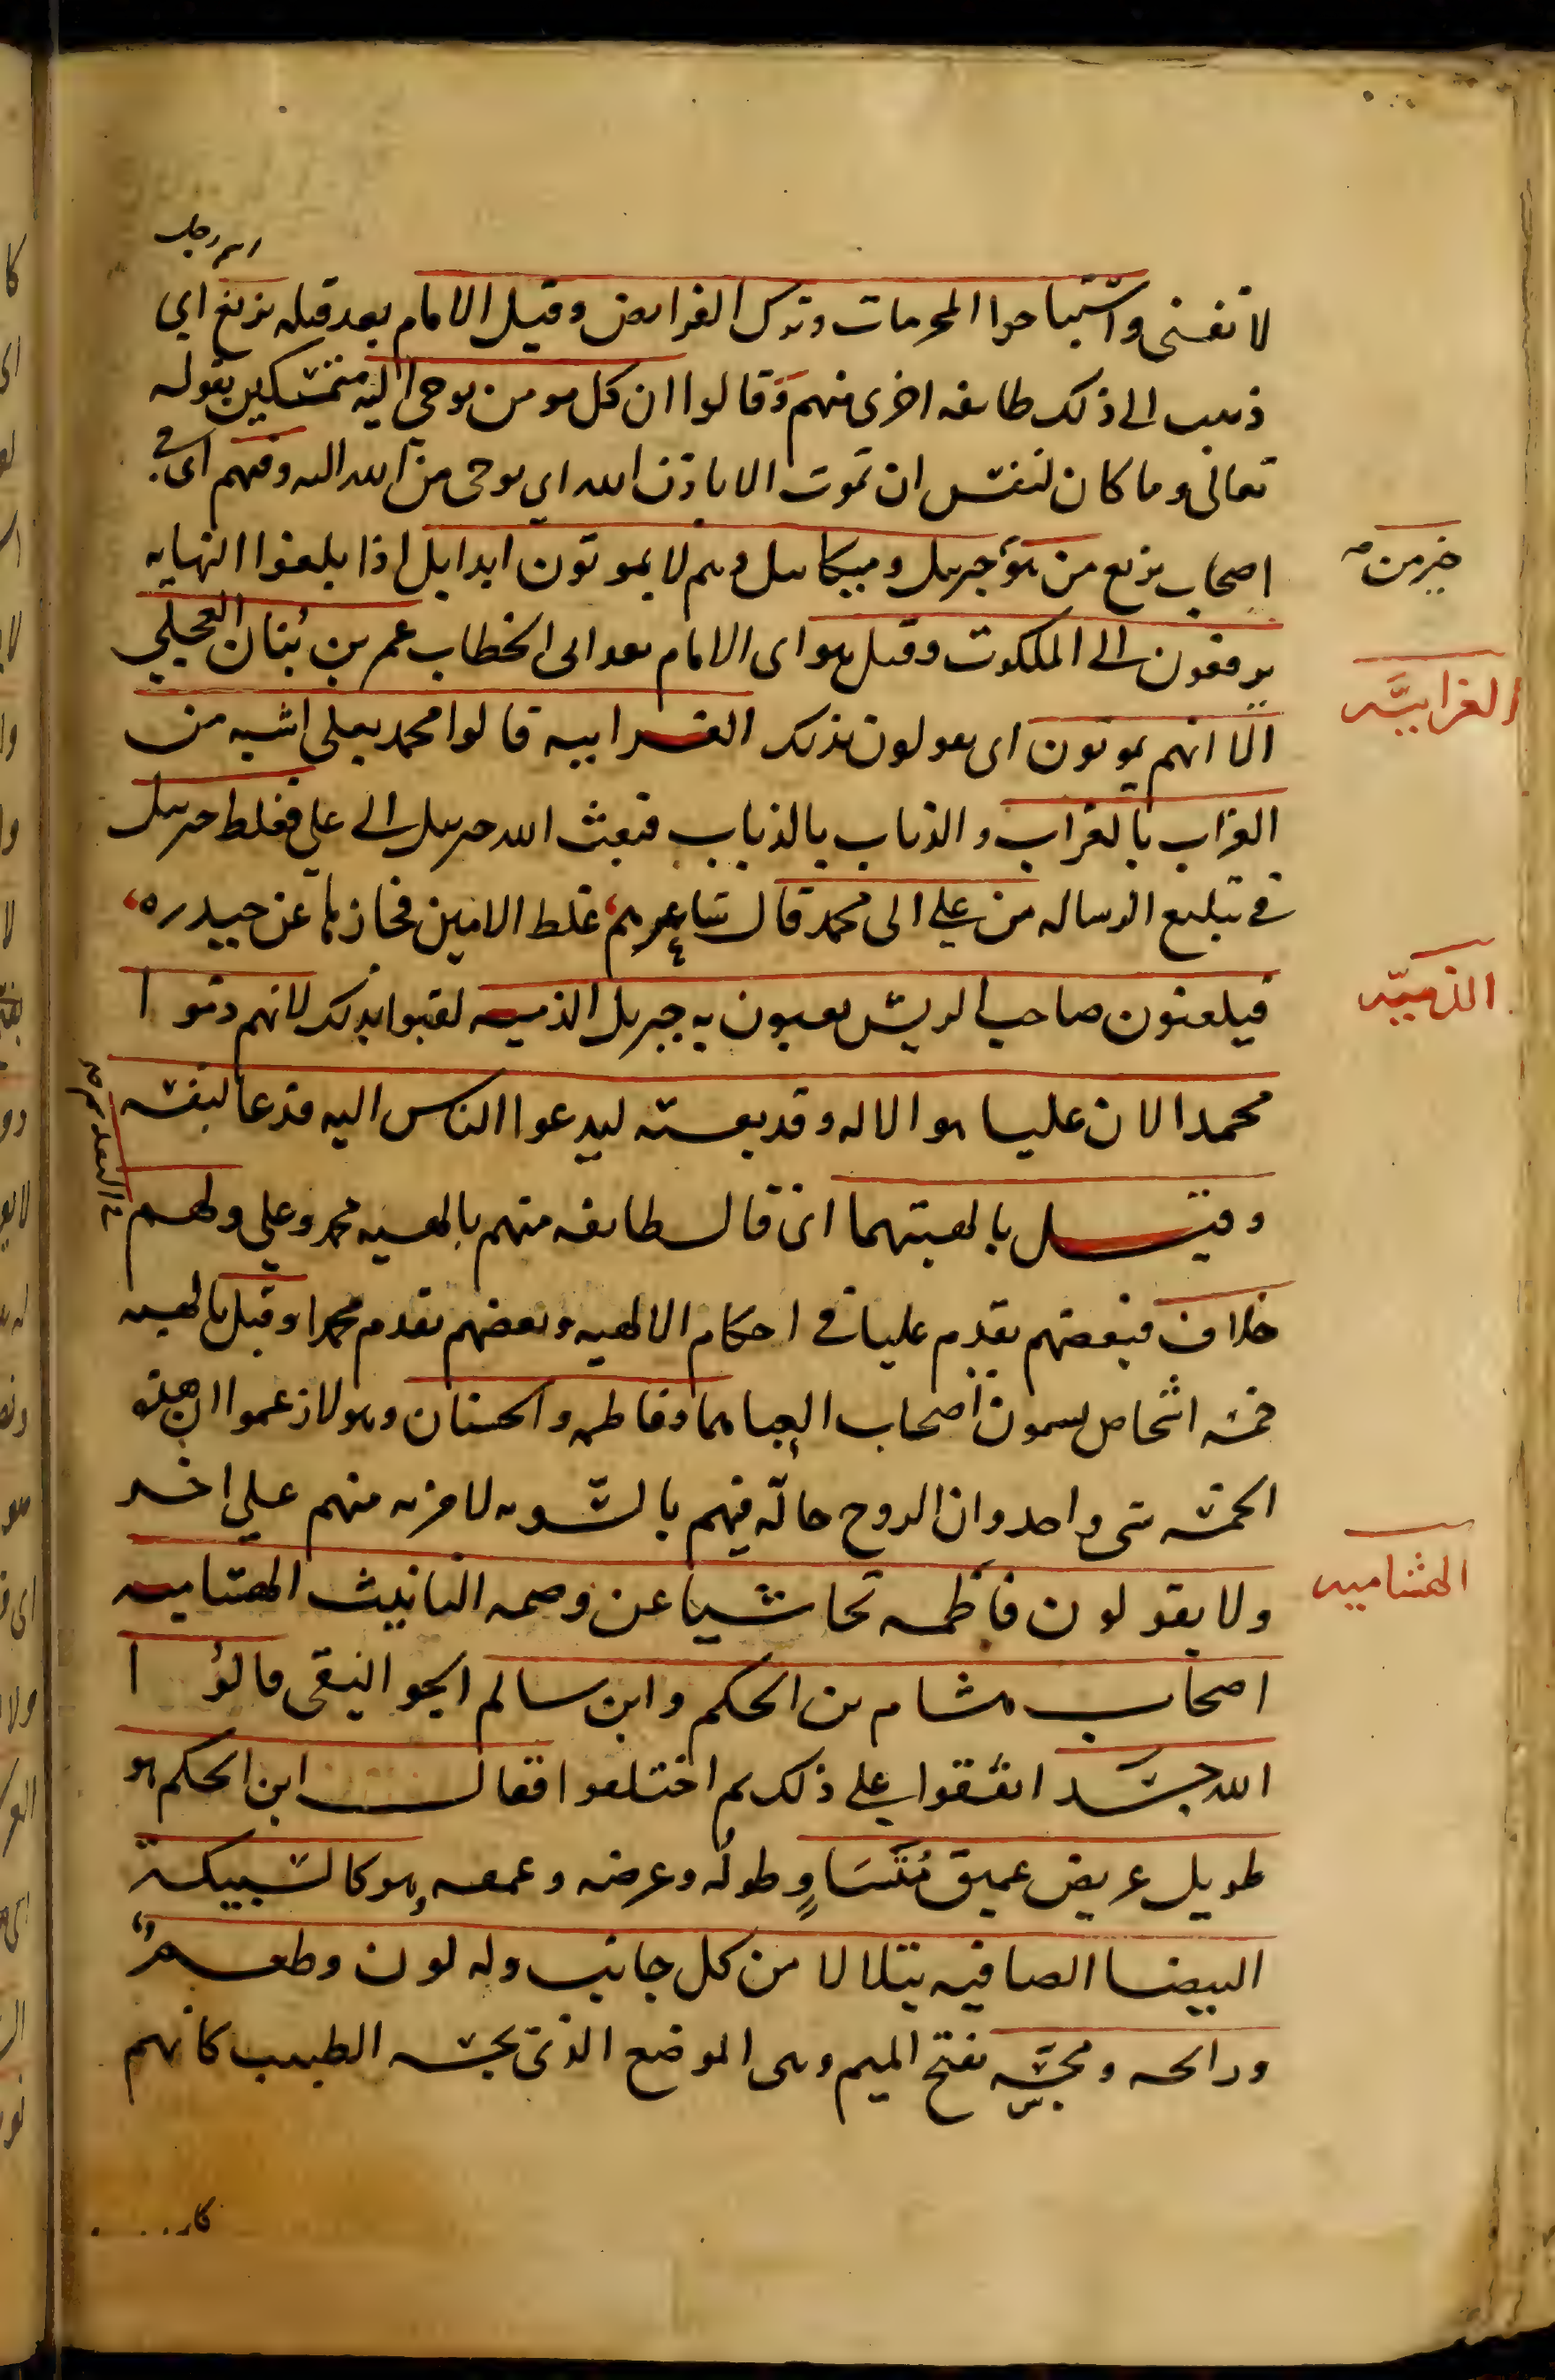 لا تفنى واستباحوا المحرمات وترك الفرايض وقيل الامام بعد قتله بزيغ اي
ذهب الى ذلك طايفه اخرى منهم وقالوا ان كل مومن يوحى اليه متمسكين بقوله
تعالى وما كان لنفس ان تموت الا باذن الله اي بوحى من الله اليه وفيهم اى في
اصحاب بزيع من هو جبريل وميكاييل وهم لا يموتون ابدا بل اذا بلغوا النهايه
خير من
يرفعون الى الملكوت وقيل هو اى الامام بعد ابى الخطاب عمر بن بُنان العجلي
الغرابيَّه
الا انهم يموتون اى يقولون بذلك الغرابيه قالوا محمد بعلى اشبه من
الغراب بالغراب والذباب بالذباب فبعث الله جبريل الى علي فغلط جبريل
في تبليغ الرساله من علي الى محمد قال شاعرهم غلط الامين فجازها عن حيدره
الذميّه
فيلعنون صاحب الريش يعنون به جبريل الذميه لقبوا بذلك لانهم ذموا
محمدا لان عليا هو الاله وقد بعثه ليدعوا الناس اليه فدعا لنفسه
وقيل بالهيتهما اى قال طايفه منهم بالهيه محمد وعلي ولهم
خلاف فبعضهم يقدم عليا في احكام الالهيه وبعضهم يقدم محمدا وقيل بالهيه
خمسه اشخاص يسمون اصحاب العبا هما وفاطمه والحسنان وهولا زعموا ان هذه
الخمسه شى واحد وان الروح حالّه فيهم بالسّويه لا مزيه منهم علي اخر
الهشاميه
ولا يقولون فاطمه تحاشيا عن وصمه التانيث الهشاميه
اصحاب هشام بن الحكم وابن سالم الجواليقى قالوا
الله جسد اتفقوا علي ذلك ثم اختلفوا فقال ابن الحكم هو
طويل عريض عميق مُتَسَاوٍ طولُه وعرضه وعمقه وهو كالسبيكة
البيضا الصافيه يتلالا من كل جانب وله لون وطعم
ورايحه ومجسّه بفتح الميم وهى الموضع الذى يجسه الطبيب كانهم